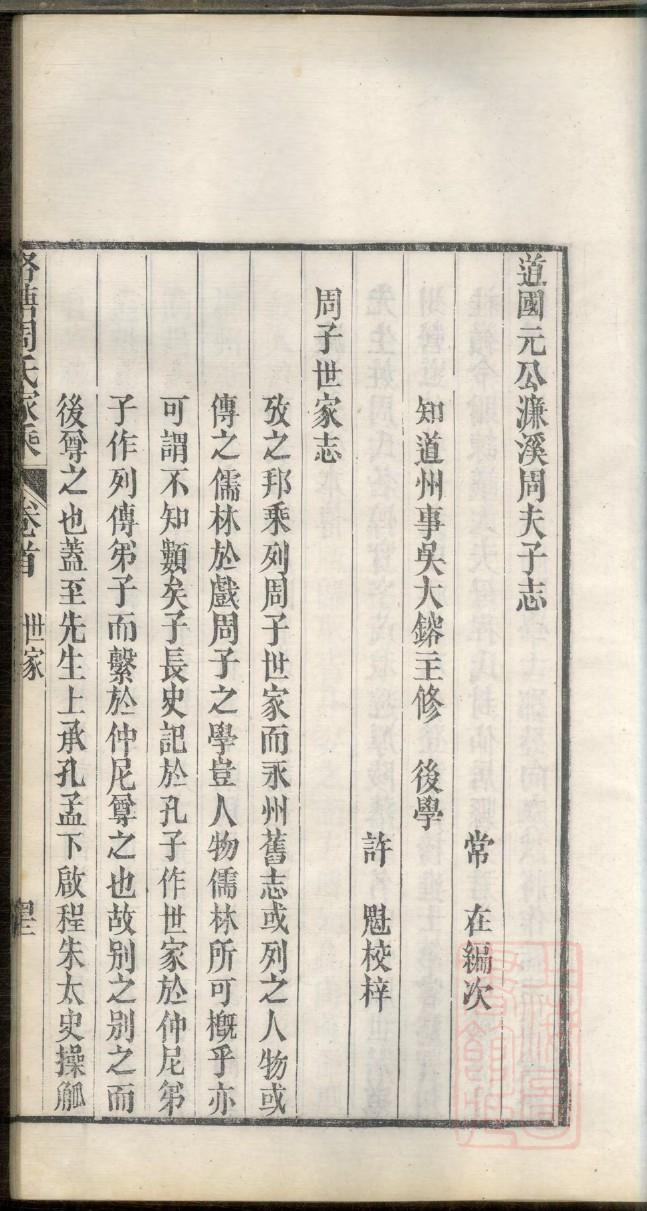 道國元公濂溪周夫子志
常　在編次
知道州事吳大鎔主修　後學
許　魁校梓
周子世家志
攷之邦乘列周子世家而永州舊志或列之人物或
傳之儒林於戲周子之學豈人物儒林所可槪乎亦
可謂不知類矣子長史記於孔子作世家於仲尼弟
子作列傳弟子而繫於仲尼尊之也故別之別之而
後尊之也蓋至先生上承孔孟下啟程朱太史操觚
周氏家乘　卷首　世家